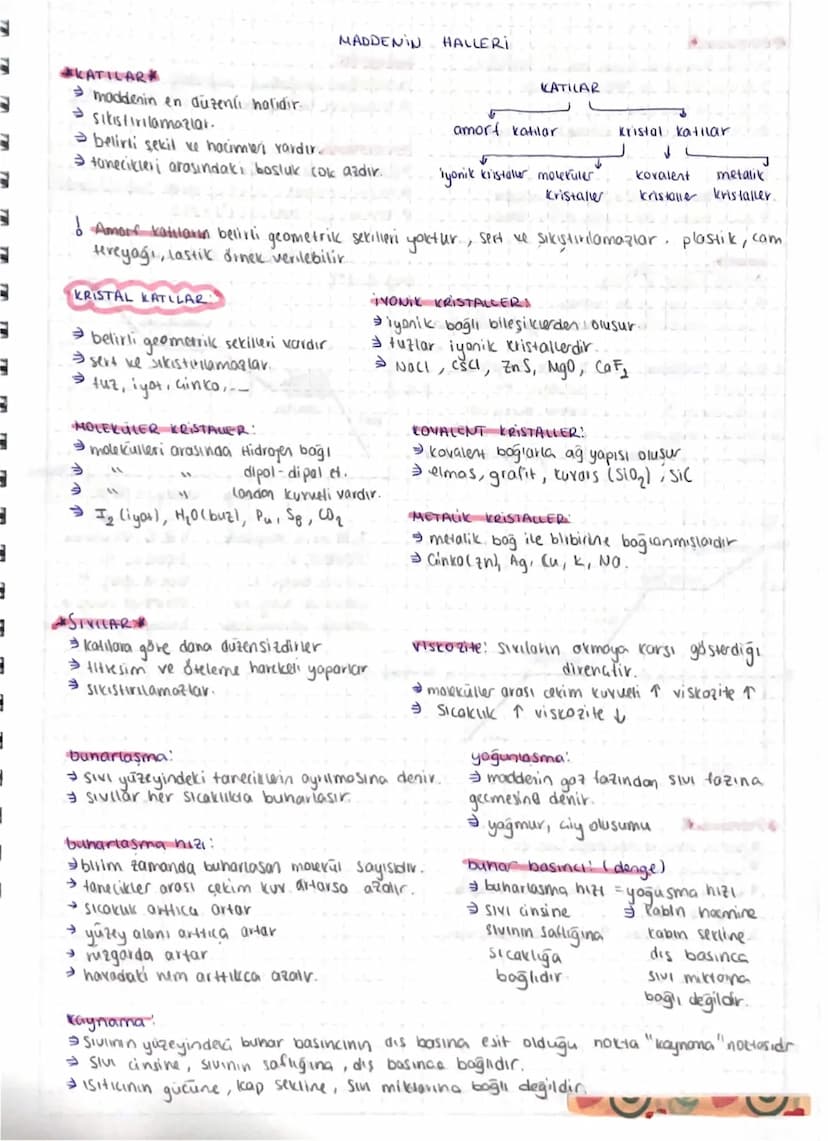 MADDENİN HALLERİ
*KATILAR*
→ maddenin en düzenli halidir.
→ sıkıştırılamazlar.
→ belirli şekil ve hacimleri vardır.
→ tanecikleri arasındaki boşluk çok azdır.
KATILAR
amorf katılar kristal katılar
iyonik kristaller moleküler kristaller kovalent kristaller metalik kristaller
! Amorf katıların belirli geometrik şekilleri yoktur, sert ve sıkıştırılamazlar. plastik, cam
tereyağı, lastik örnek verilebilir
KRİSTAL KATILAR:
→ belirli geometrik şekilleri vardır
→ sert ve sıkıştırılamazlar.
→ tuz, iyot, çinko, ...
İYONİK KRİSTALLER:
→ iyonik bağlı bileşiklerden oluşur.
→ tuzlar iyonik kristallerdir.
→ NaCl, CsCl, ZnS, MgO, CaF₂
MOLEKÜLER KRİSTALLER:
→ molekülleri arasında Hidrojen bağı
→ " " dipol-dipol et.
→ " " london kuvveti vardır.
→ I₂ (iyot), H₂O (buz), P₄, S₈, CO₂
KOVALENT KRİSTALLER:
→ kovalent bağlarla ağ yapısı oluşur
→ elmas, grafit, kuvars (SiO₂), SiC
METALİK KRİSTALLER:
→ metalik bağ ile birbirine bağlanmışlardır
→ Çinko (Zn), Ag, Cu, K, Na.
*SIVILAR*
→ katılara göre daha düzensizdirler
→ titreşim ve öteleme hareketi yaparlar
→ sıkıştırılamazlar.
viskozite: sıvıların akmaya karşı gösterdiği
dirençtir.
→ moleküller arası çekim kuvveti ↑ viskozite ↑
→ Sıcaklık ↑ viskozite ↓
buharlaşma:
→ sıvı yüzeyindeki taneciklerin ayrılmasına denir.
→ sıvılar her sıcaklıkta buharlaşır.
yoğunlaşma:
→ maddenin gaz fazından sıvı fazına
geçmesine denir.
→ yağmur, çiy oluşumu
buharlaşma hızı:
→ birim zamanda buharlaşan molekül sayısıdır.
→ tanecikler arası çekim kuv. artarsa azalır.
→ sıcaklık arttıça artar
→ yüzey alanı arttıça artar
→ rüzgarda artar
→ havadaki nem arttıkca azalır.
buhar basıncı: (denge)
→ buharlaşma hızı = yoğuşma hızı
→ sıvı cinsine
sıvının saflığına
sıcaklığa
bağlıdır
→ kabın hacmine
kabın şekline
dış basınca
sıvı miktarına
bağlı değildir.
kaynama:
→ Sıvının yüzeyindeki buhar basıncının dış basına eşit olduğu nokta "kaynama" noktasıdır
→ sıvı cinsine, sıvının saflığına, dış basınca bağlıdır.
→ ısıtıcının gücüne, kap şekline, sıvı miktarına bağlı değildir.